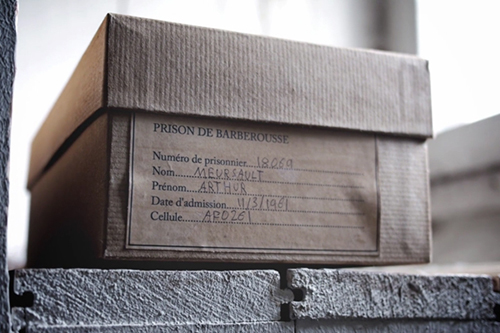 PRISON DE BARBEROUSSE
Numéro de prisonnier....18069
Nom............MEURSAULT
Prénom.........ARTHUR
Date d'admission....11/3/1961
Cellule............